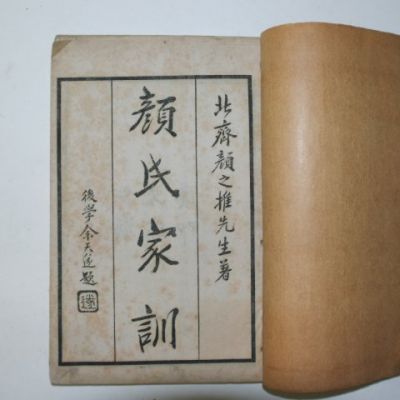 北齊顏之推先生著
顏氏家訓
後學余天遂題